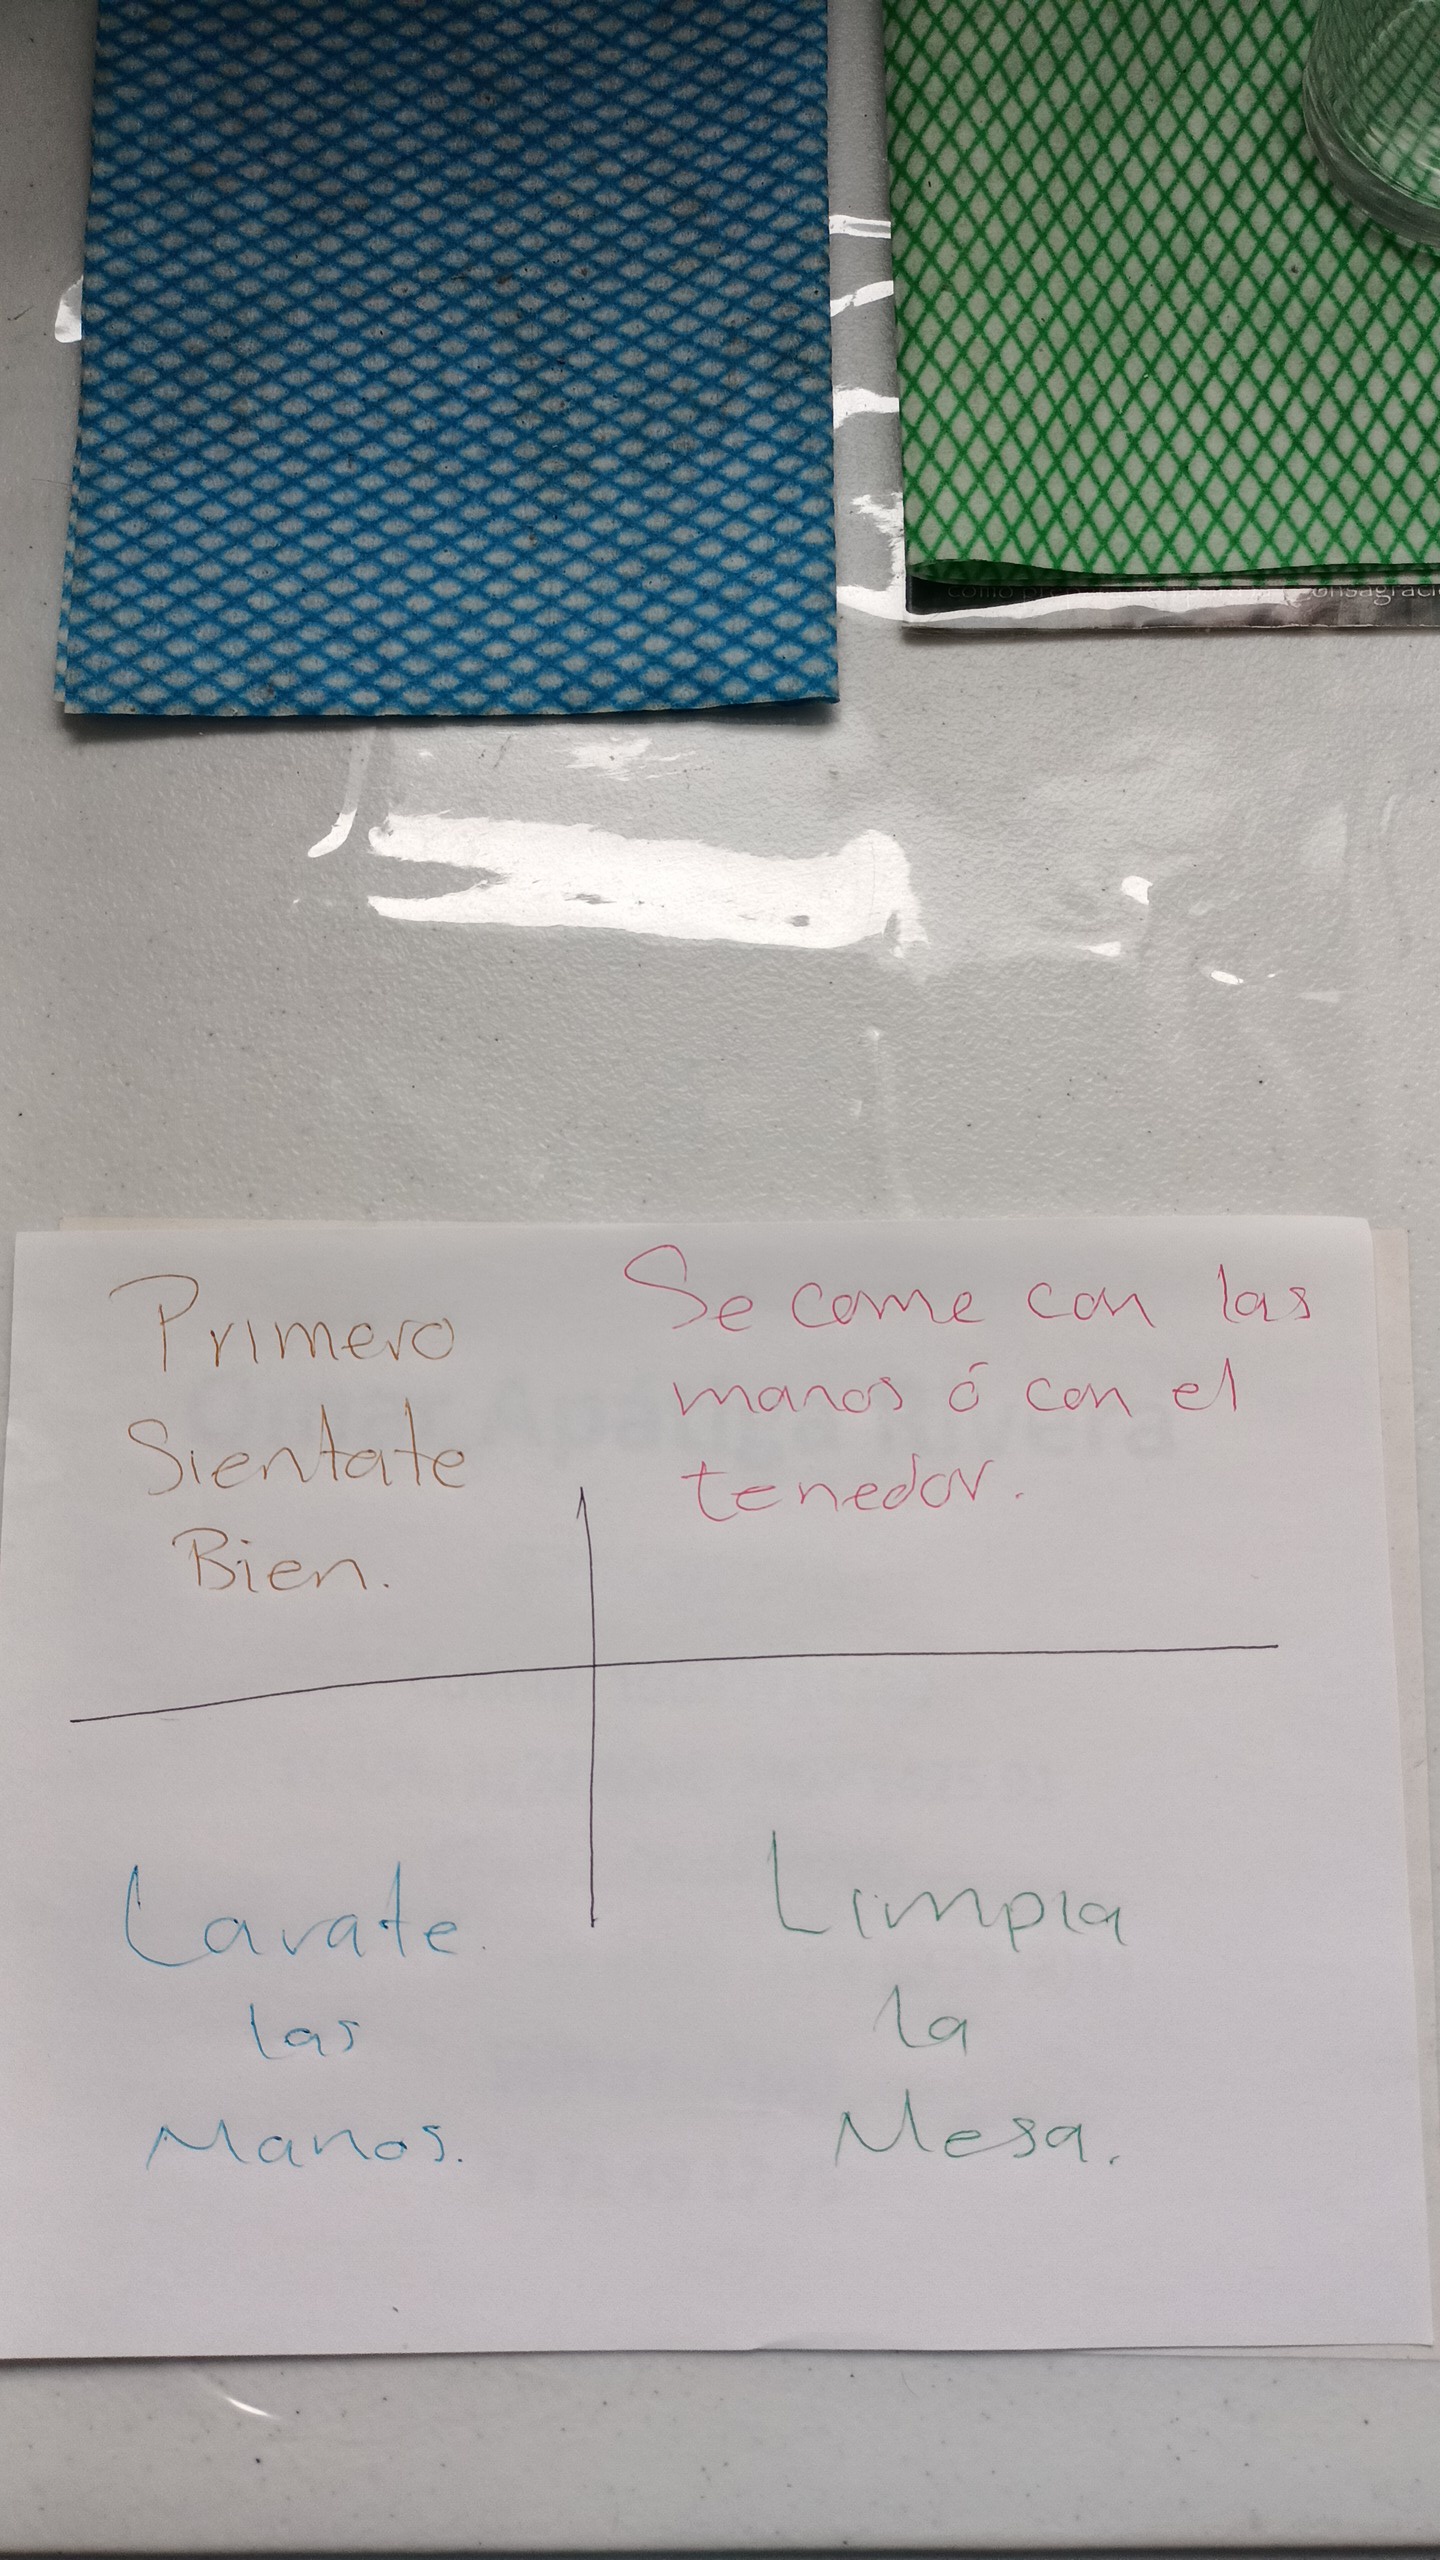 Primero
Sientate
Bien.
Se come con las
manos ó con el
tenedor.
Lavate.
las
Manos.
Limpia
la
Mesa.